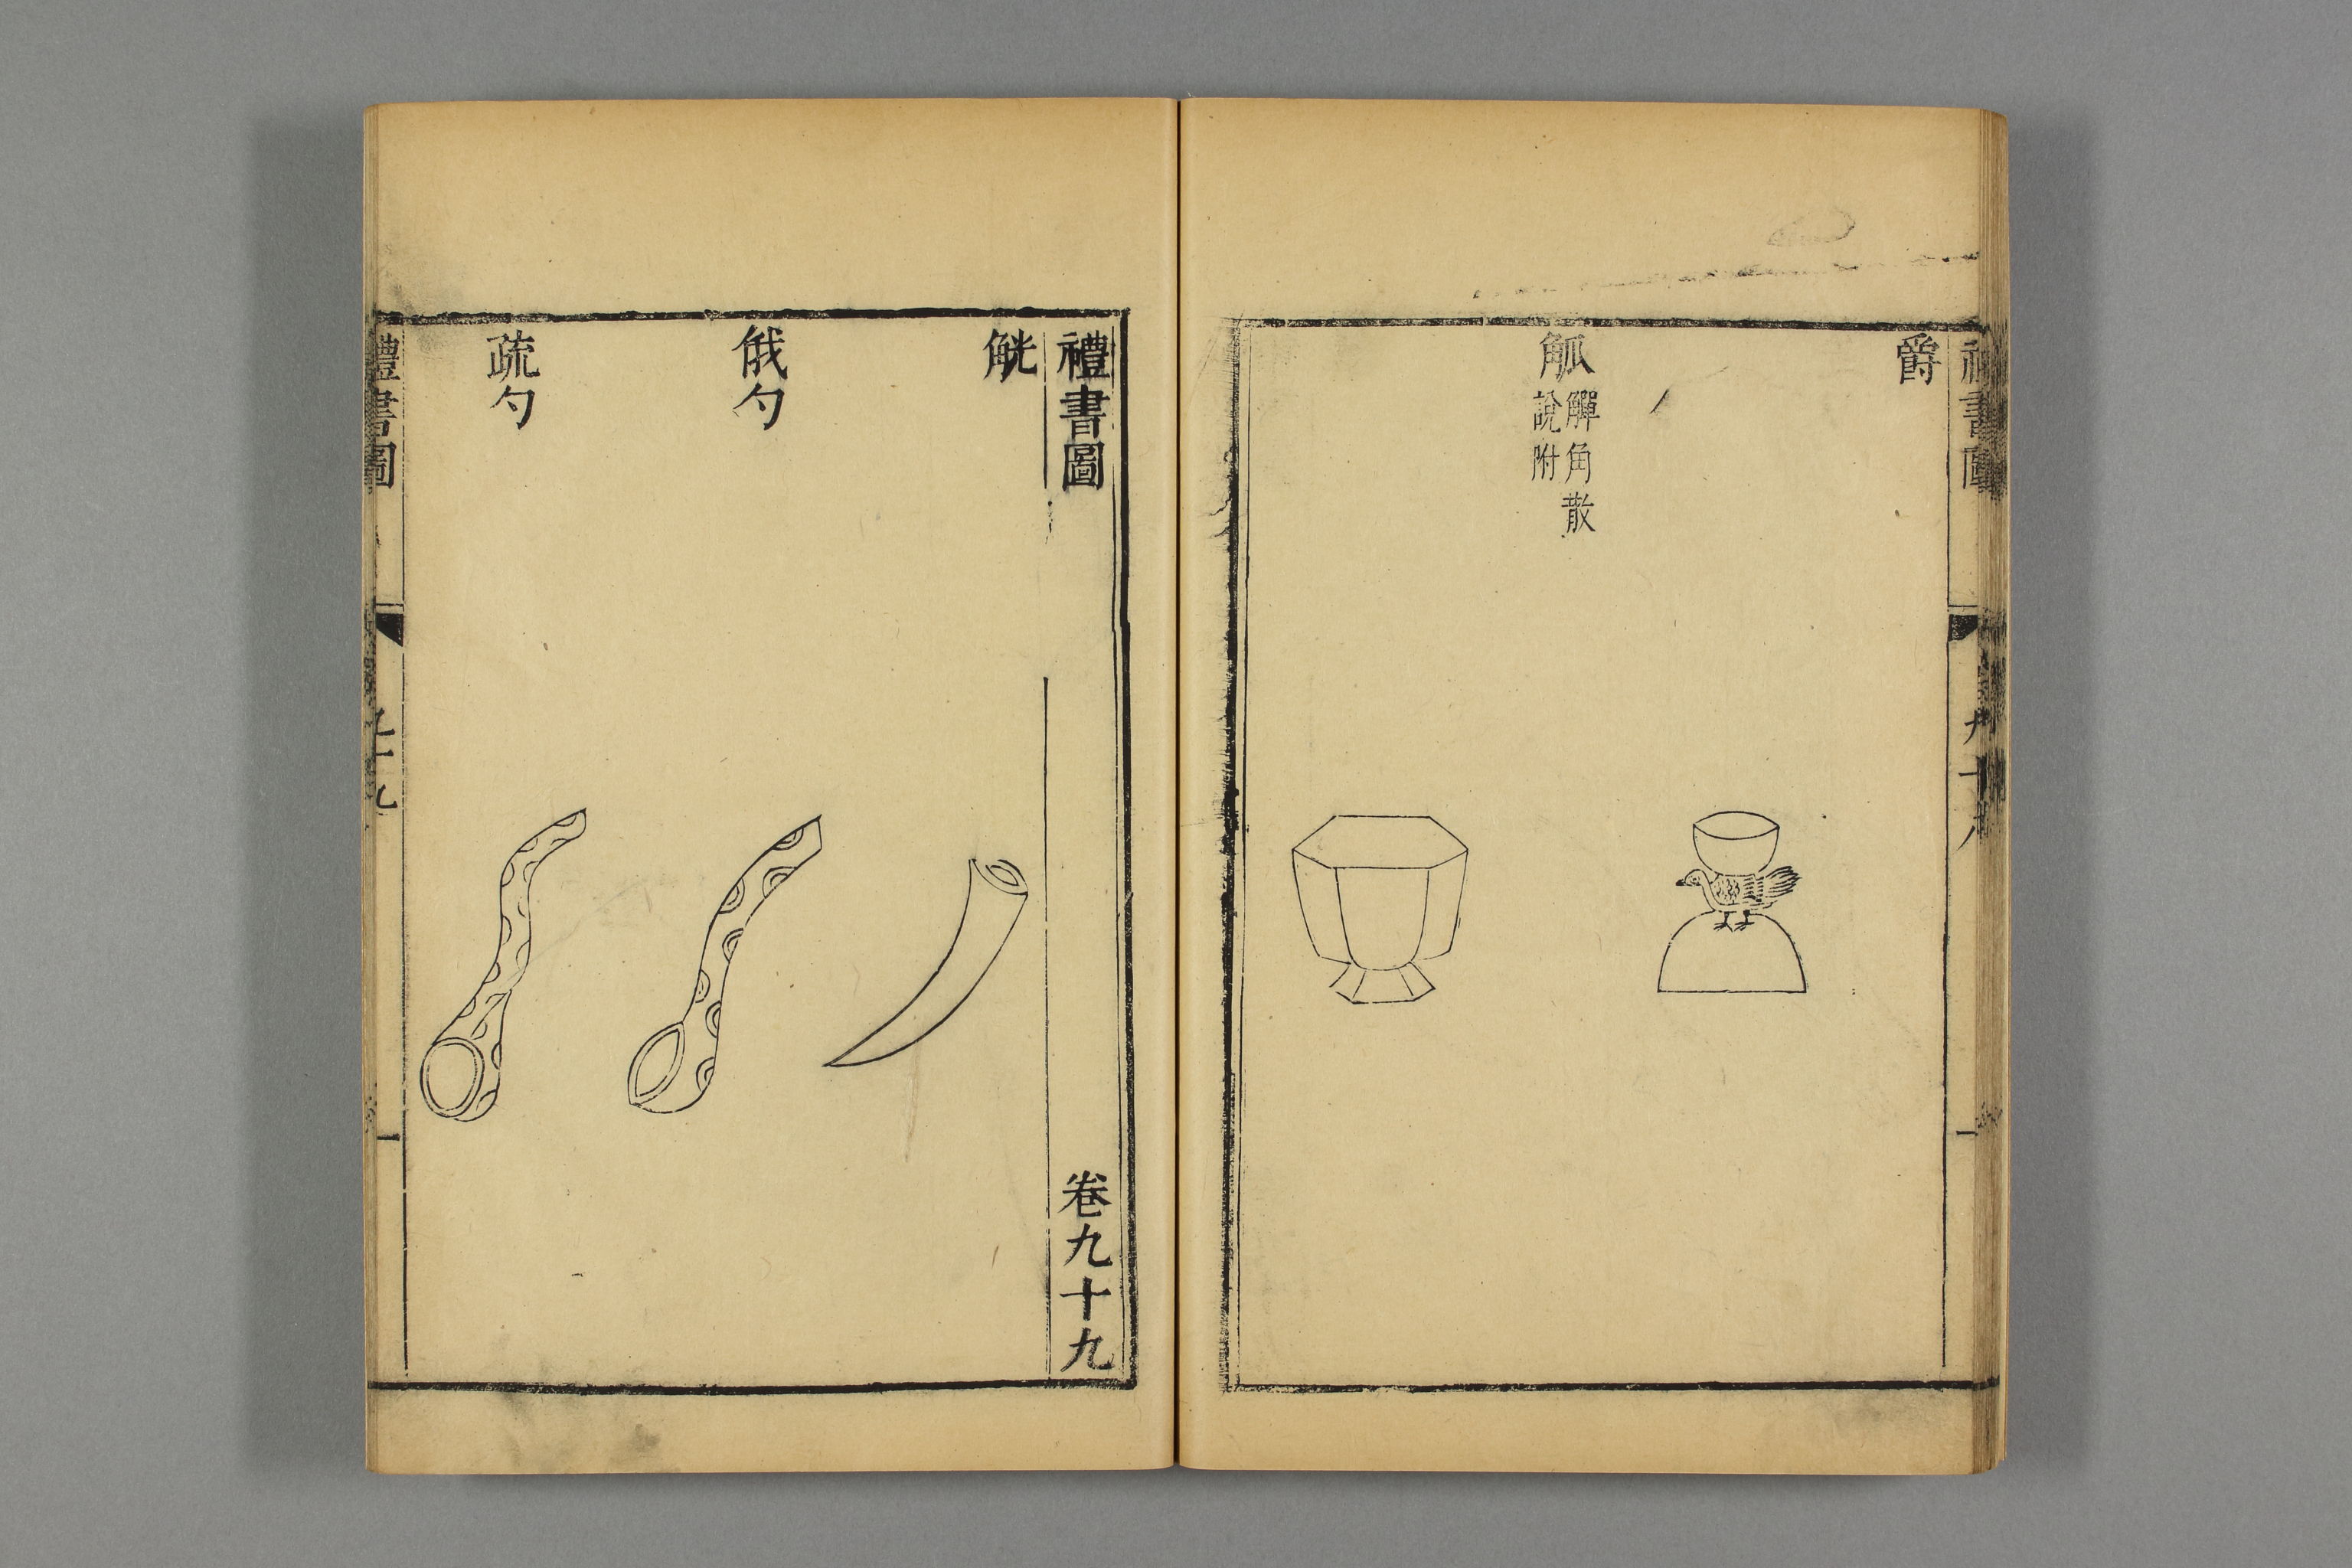 禮書圖
九十八
一
爵
觚
觶角散
說附
禮書圖
卷九十九
觥
俄勺
疏勺
禮書圖
九十九
一